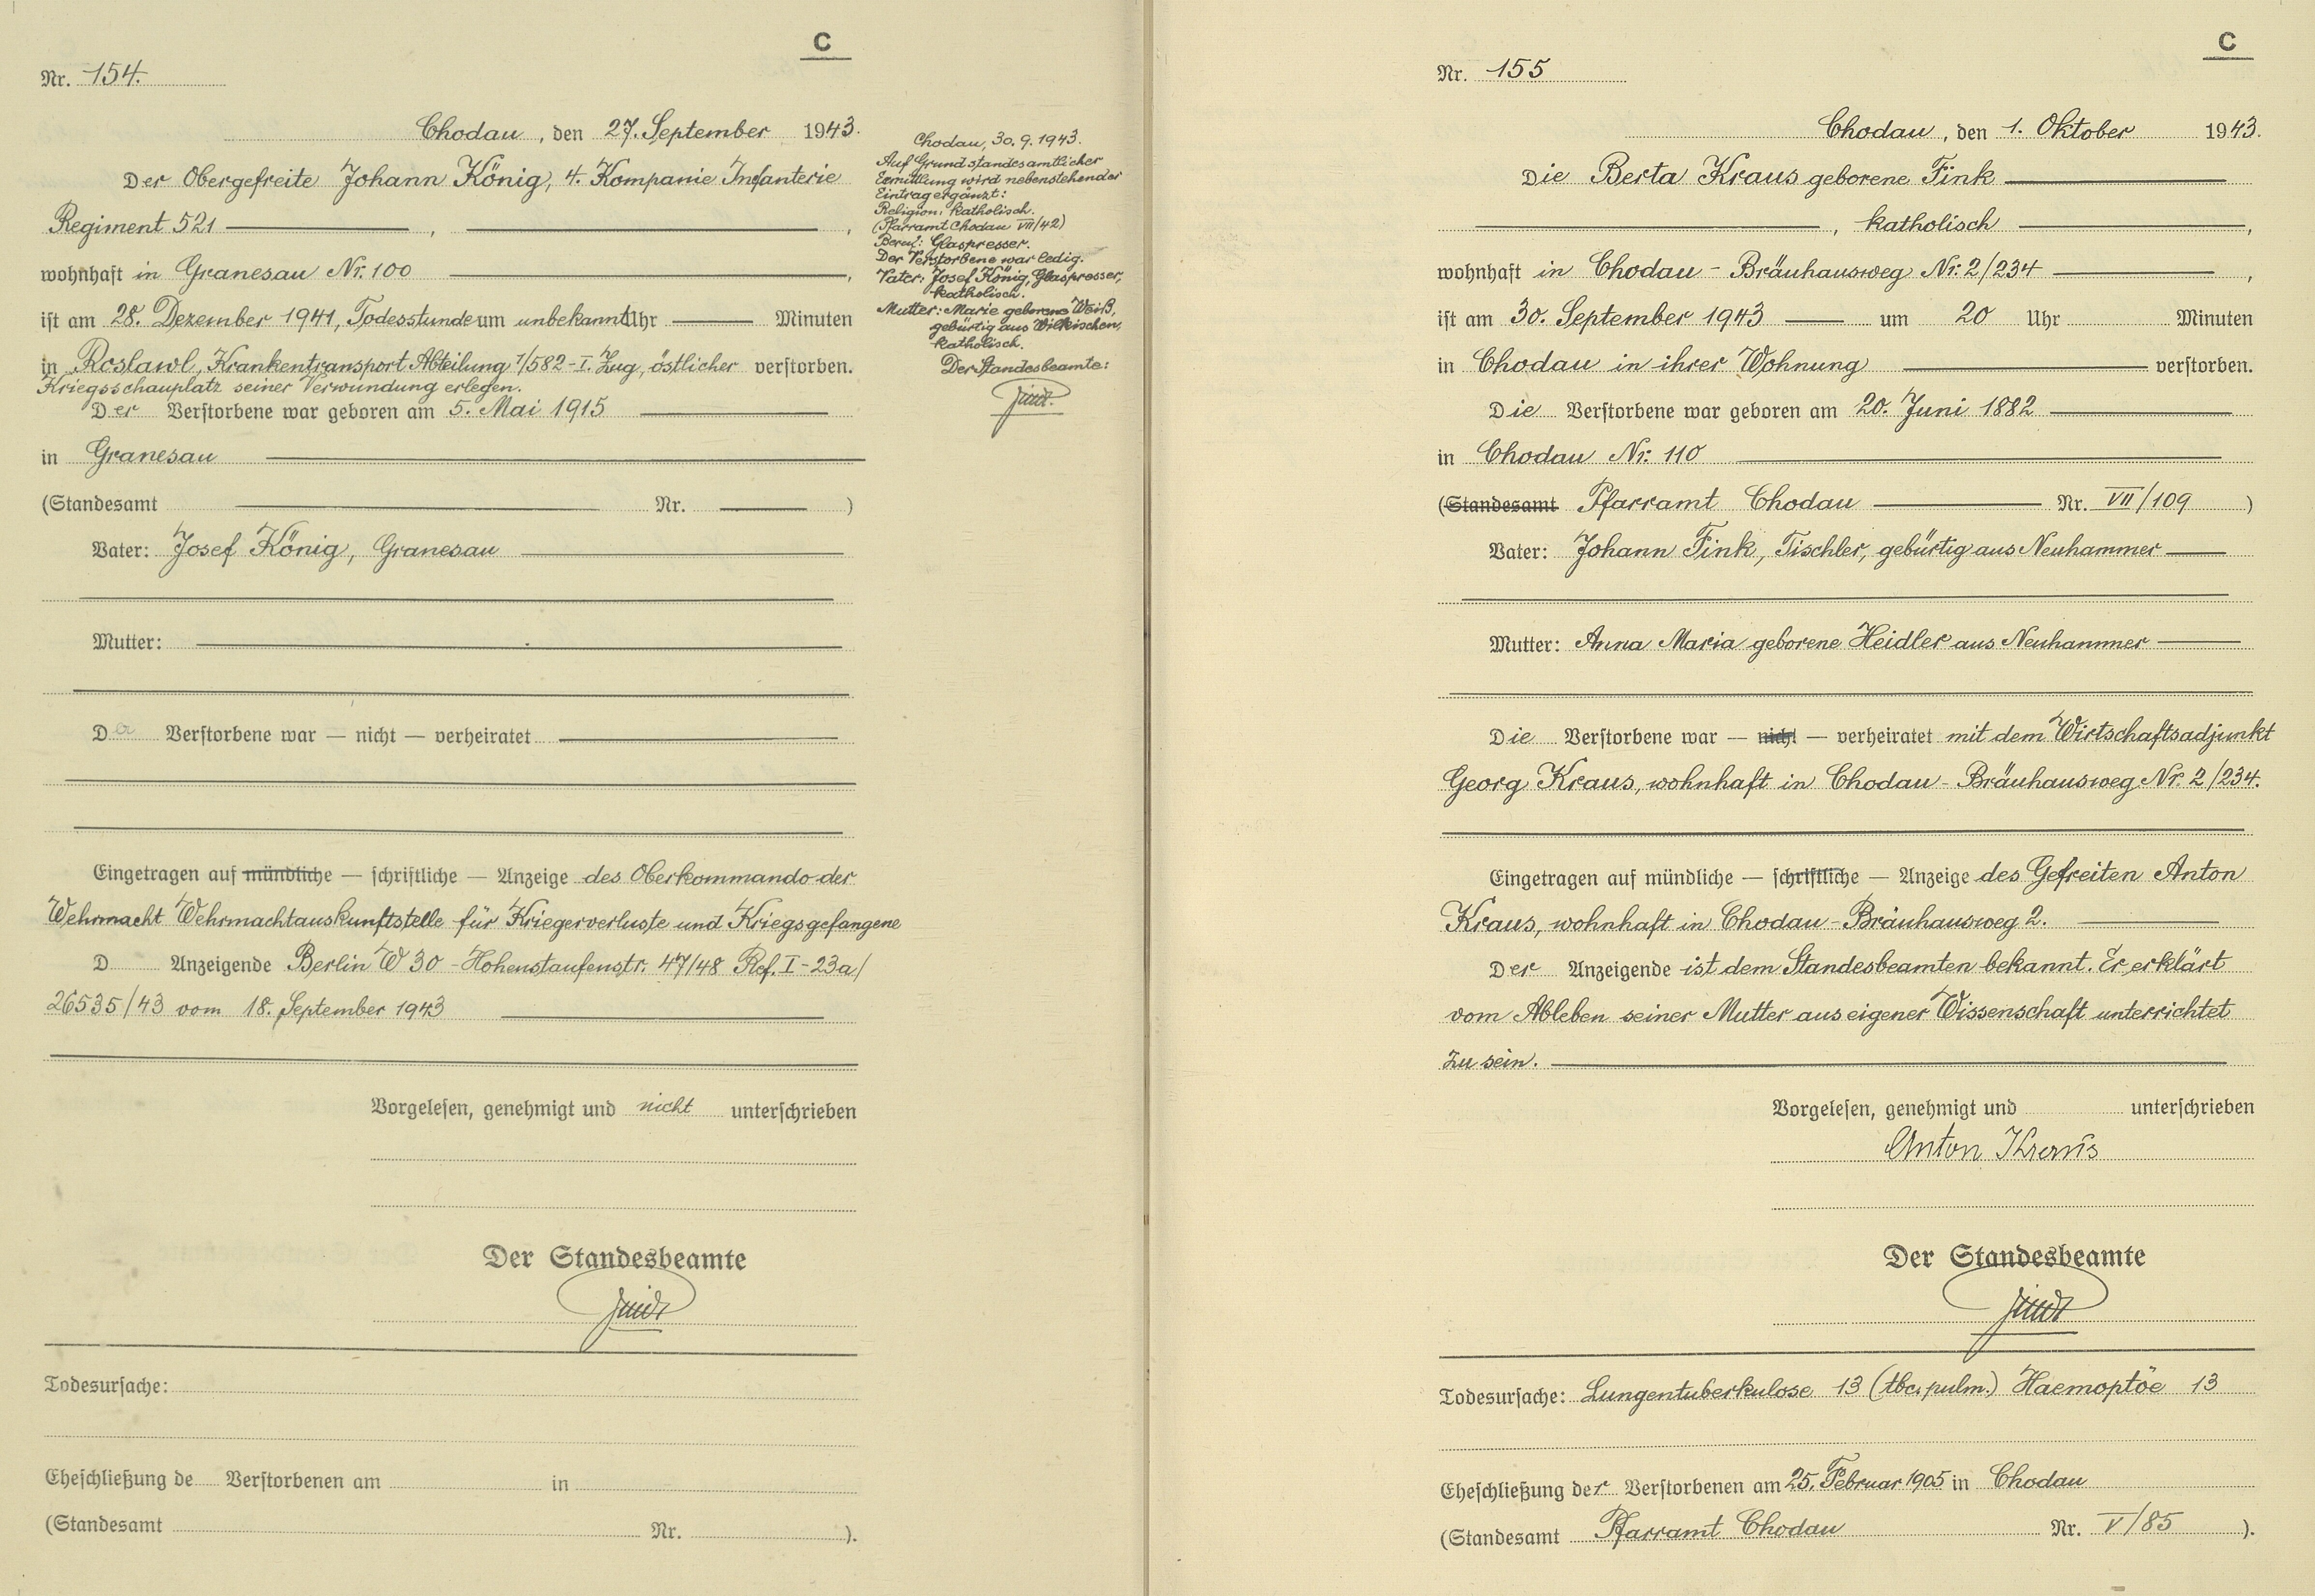 C
Nr. 154.
Chodau, den 27. September 1943.
Der Obergefreite Johann König, 4. Kompanie Infanterie
Regiment 521 , ,
wohnhaft in Granesau Nr. 100 ,
ist am 28. Dezember 1941, Todesstunde um unbekannt Uhr Minuten
in Roslawl, Krankentransport Abteilung 1/582 - I. Zug, östlicher verstorben.
Kriegsschauplatz seiner Verwundung erlegen.
Der Verstorbene war geboren am 5. Mai 1915
in Granesau
(Standesamt Nr. )
Vater: Josef König, Granesau
Mutter:
D Verstorbene war — nicht — verheiratet
Eingetragen auf mündliche — schriftliche — Anzeige des Oberkommando der
Wehrmacht Wehrmachtauskunftstelle für Kriegerverluste und Kriegsgefangene
D Anzeigende Berlin W 30 - Hohenstaufenstr. 47/48 Ref. I - 23a/
26535/43 vom 18. September 1943
Vorgelesen, genehmigt und nicht unterschrieben
Der Standesbeamte
Todesursache:
Eheschließung de Verstorbenen am in
(Standesamt Nr. ).
Chodau, 30.9.1943.
Auf Grund standesamtlicher
Ermittlung wird nebenstehender
Eintrag ergänzt:
Religion: katholisch.
(Pfarramt Chodau VII/42)
Beruf: Glaspresser.
Der Verstorbene war ledig.
Vater: Josef König, Glaspresser,
katholisch.
Mutter: Marie geborene Weiß,
gebürtig aus Wilkischen,
katholisch.
Der Standesbeamte:
C
Nr. 155
Chodau, den 1. Oktober 1943.
Die Berta Kraus geborene Fink
, katholisch ,
wohnhaft in Chodau - Bräuhausweg Nr. 2/234 ,
ist am 30. September 1943 um 20 Uhr Minuten
in Chodau in ihrer Wohnung verstorben.
Die Verstorbene war geboren am 20. Juni 1882
in Chodau Nr. 110
(Standesamt Pfarramt Chodau Nr. VII/109 )
Vater: Johann Fink, Tischler, gebürtig aus Neuhammer
Mutter: Anna Maria geborene Heidler aus Neuhammer
Die Verstorbene war — nicht — verheiratet mit dem Wirtschaftsadjunkt
Georg Kraus, wohnhaft in Chodau - Bräuhausweg Nr. 2/234.
Eingetragen auf mündliche — schriftliche — Anzeige des Gefreiten Anton
Kraus, wohnhaft in Chodau - Bräuhausweg 2.
Der Anzeigende ist dem Standesbeamten bekannt. Er erklärt
vom Ableben seiner Mutter aus eigener Wissenschaft unterrichtet
zu sein.
Vorgelesen, genehmigt und unterschrieben
Anton Kraus
Der Standesbeamte
Todesursache: Lungentuberkulose 13 (tbc. pulm.) Haemoptöe 13
Eheschließung der Verstorbenen am 25. Februar 1905 in Chodau
(Standesamt Pfarramt Chodau Nr. V/85 ).